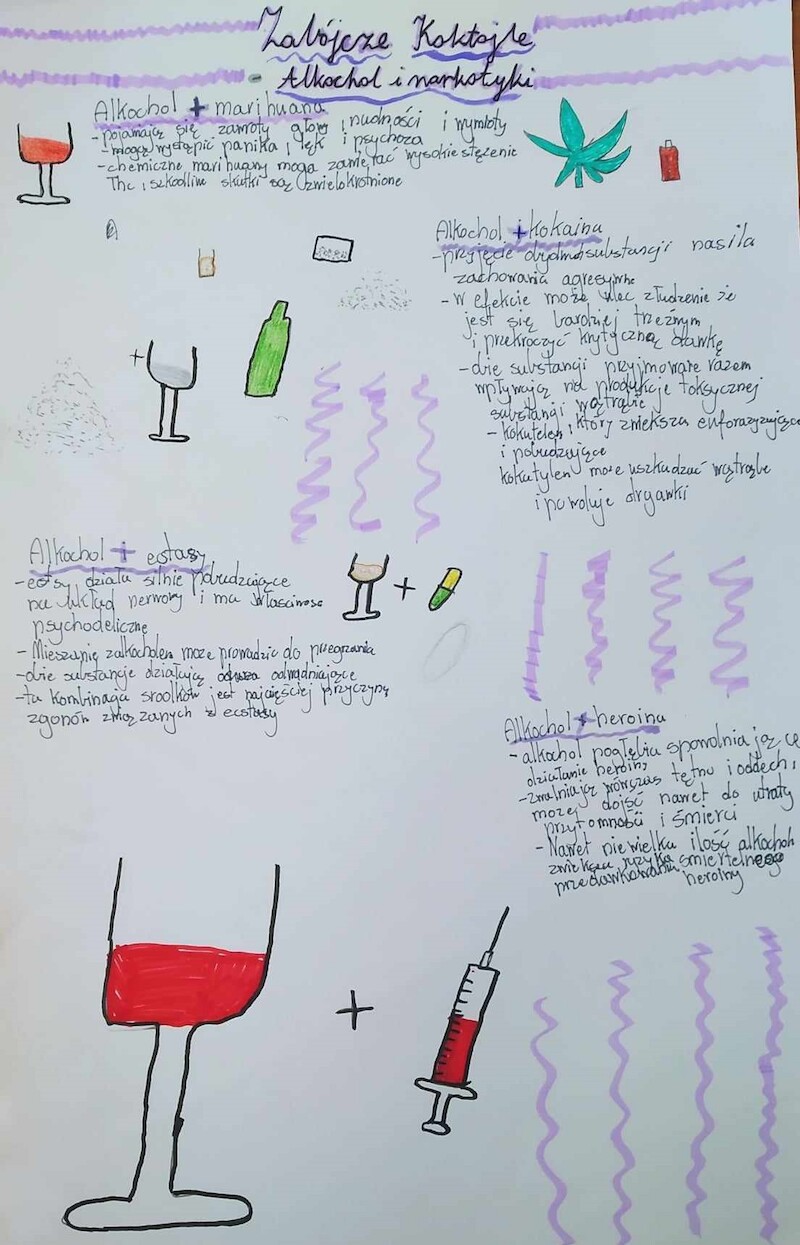 Zabójcze Koktajle
- Alkochol i narkotyki
Alkochol + marihuana
- pojawiają się zawroty głowy, nudności i wymioty
- mogą wystąpić panika, lęk i psychoza
- chemiczne marihuany mogą zawierać wysokie stężenie
Thc i szkodliwe skutki są zwielokrotnione
Alkochol + kokaina
- przyjęcie obydwu substancji nasila
zachowania agresywne
- w efekcie może ulec złudzenie że
jest się bardziej trzeźnym
i przekroczyć krytyczną dawkę
- dwie substancji przyjmowane razem
wpływają na produkcje toksycznej
substancji wątrobie
- kokutelen, który zwiększa euforazyzujące
i pobudzające
kokutylen może uszkudzać wątrąbe
i powoluje drgawki
+
Alkochol + ecstasy
- ectsy działa silnie pobudzające
na układ nerwowy i ma właściwose
psychodeliczne
- Mieszanie zalkocholem może prowadzic do przegrzania
- dwie substancje działają odwadniające
- ta kombinacja środków jest najczęściej przyczyną
zgonów związanych z ecstasy
+
Alkochol + heroina
- alkochol pogłębia spowolniające
działanie heroiny
- zwalniając wówczas tętno i oddech,
możej dojść nawet do utraty
przytomności i śmierci
- Nawet niewielka ilość alkocholu
zwiększa ryzyko śmiertelnego
przedawkowania heroiny
+